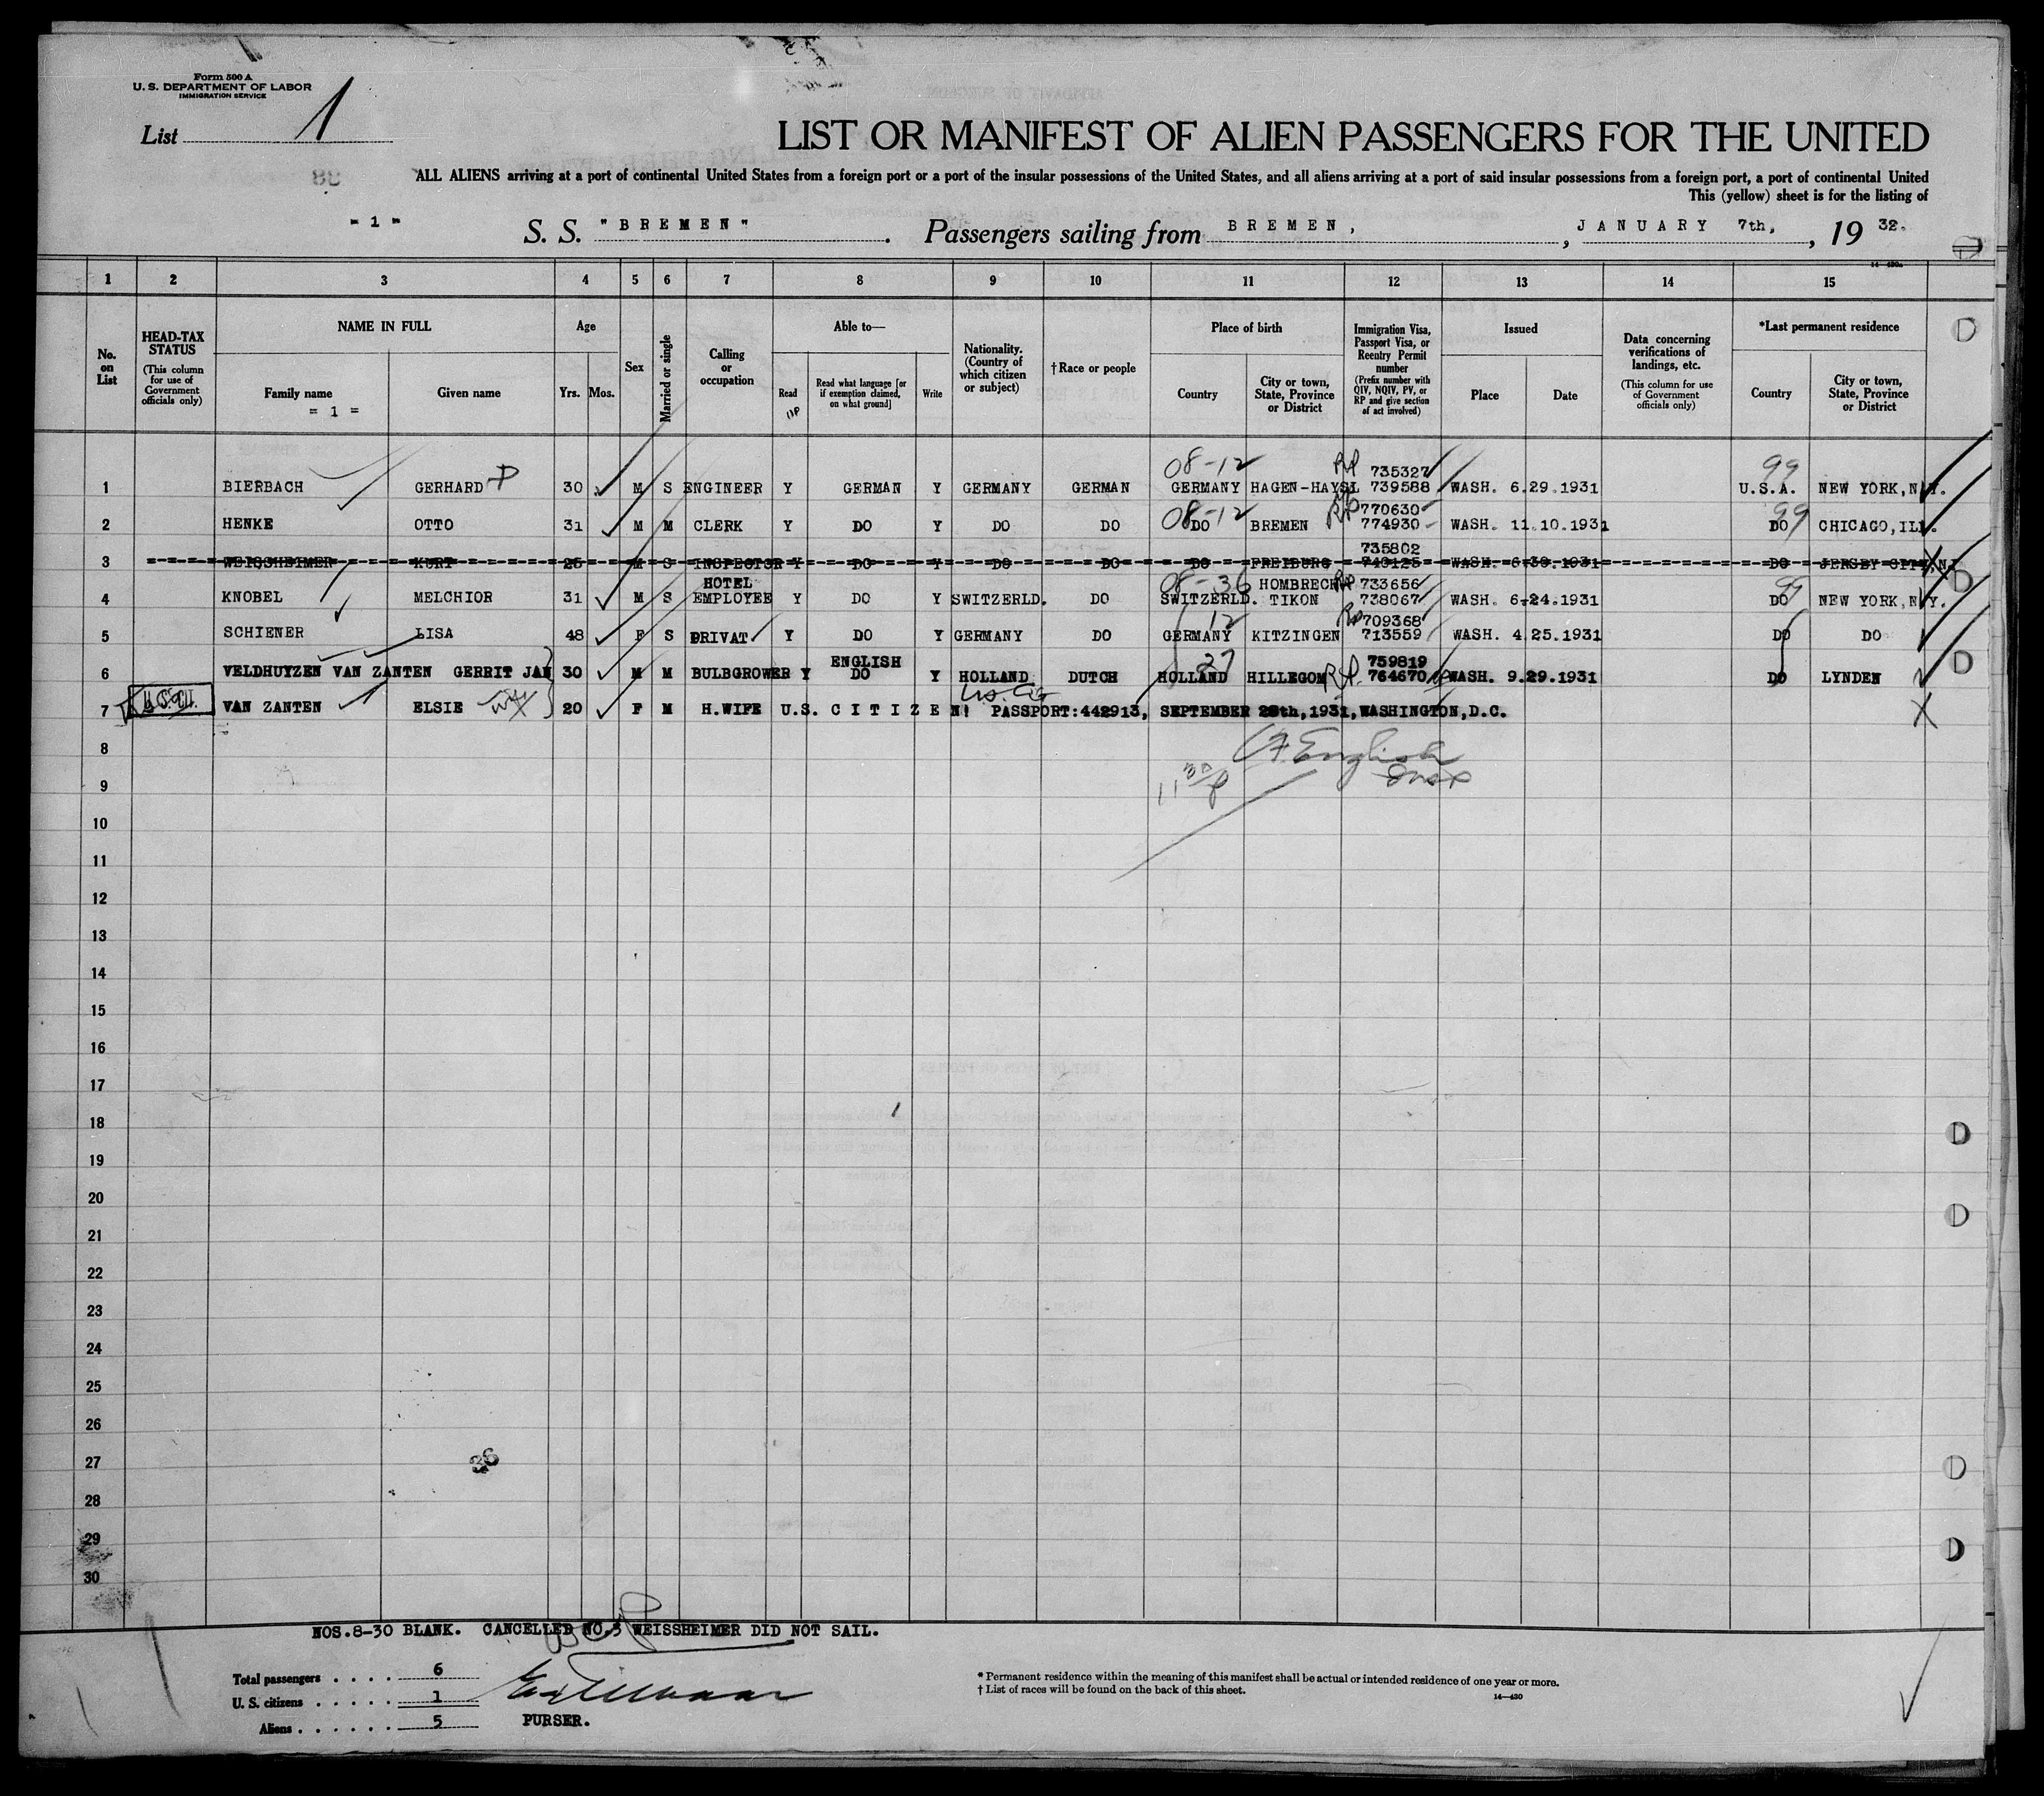 Form 500 A
U. S. DEPARTMENT OF LABOR
IMMIGRATION SERVICE
List 1
LIST OR MANIFEST OF ALIEN PASSENGERS FOR THE UNITED
ALL ALIENS arriving at a port of continental United States from a foreign port or a port of the insular possessions of the United States, and all aliens arriving at a port of said insular possessions from a foreign port, a port of continental United
This (yellow) sheet is for the listing of
= 1 = S. S. "BREMEN". Passengers sailing from BREMEN, , JANUARY 7th, , 19 32.
14—430a
1 2 3 4 5 6 7 8 9 10 11 12 13 14 15
No. on List
HEAD-TAX STATUS (This column for use of Government officials only)
NAME IN FULL
Family name = 1 =
Given name
Age
Yrs. Mos.
Sex
Married or single
Calling or occupation
Able to—
Read
Read what language [or if exemption claimed, on what ground]
Write
Nationality. (Country of which citizen or subject)
† Race or people
Place of birth
Country
City or town, State, Province or District
Immigration Visa, Passport Visa, or Reentry Permit number (Prefix number with QIV, NQIV, PV, or RP and give section of act involved)
Issued
Place
Date
Data concerning verifications of landings, etc. (This column for use of Government officials only)
*Last permanent residence
Country
City or town, State, Province or District
08-12 RP 735327 99
1 BIERBACH GERHARD 30 M S ENGINEER Y GERMAN Y GERMANY GERMAN GERMANY HAGEN-HAYSL 739588 WASH. 6.29.1931 U.S.A. NEW YORK, N.Y.
08-12 RP 770630 99
2 HENKE OTTO 31 M M CLERK Y DO Y DO DO DO BREMEN 774930 WASH. 11.10.1931 DO CHICAGO, ILL.
735802
3 WEISSHEIMER KURT 25 M S INSPECTOR Y DO Y DO DO DO FREIBURG 740125 WASH. 6.30.1931 DO JERSEY CITY, NJ
HOTEL 08-36 HOMBRECH RP 733656
4 KNOBEL MELCHIOR 31 M S EMPLOYEE Y DO Y SWITZERLD. DO SWITZERLD. TIKON 738067 WASH. 6-24.1931 DO NEW YORK, N.Y.
12 RP 709368
5 SCHIENER LISA 48 F S PRIVAT Y DO Y GERMANY DO GERMANY KITZINGEN 713559 WASH. 4.25.1931 DO DO
ENGLISH 27 759819
6 VELDHUYZEN VAN ZANTEN GERRIT JAN 30 M M BULBGROWER Y DO Y HOLLAND DUTCH HOLLAND HILLEGOM RP. 764670 WASH. 9.29.1931 DO LYNDEN
U.S. Cit
7 VAN ZANTEN ELSIE 20 F M H.WIFE U.S. CITIZEN! PASSPORT:442913, SEPTEMBER 28th, 1931, WASHINGTON, D.C.
8
English
9
11 30
10
11
12
13
14
15
16
17
18
19
20
21
22
23
24
25
26
27
36
28
29
30
NOS.8-30 BLANK. CANCELLED NO.3 WEISSHEIMER DID NOT SAIL.
Total passengers . . . . . 6
U. S. citizens . . . . . 1
Aliens . . . . . . 5
PURSER.
* Permanent residence within the meaning of this manifest shall be actual or intended residence of one year or more.
† List of races will be found on the back of this sheet.
14—430